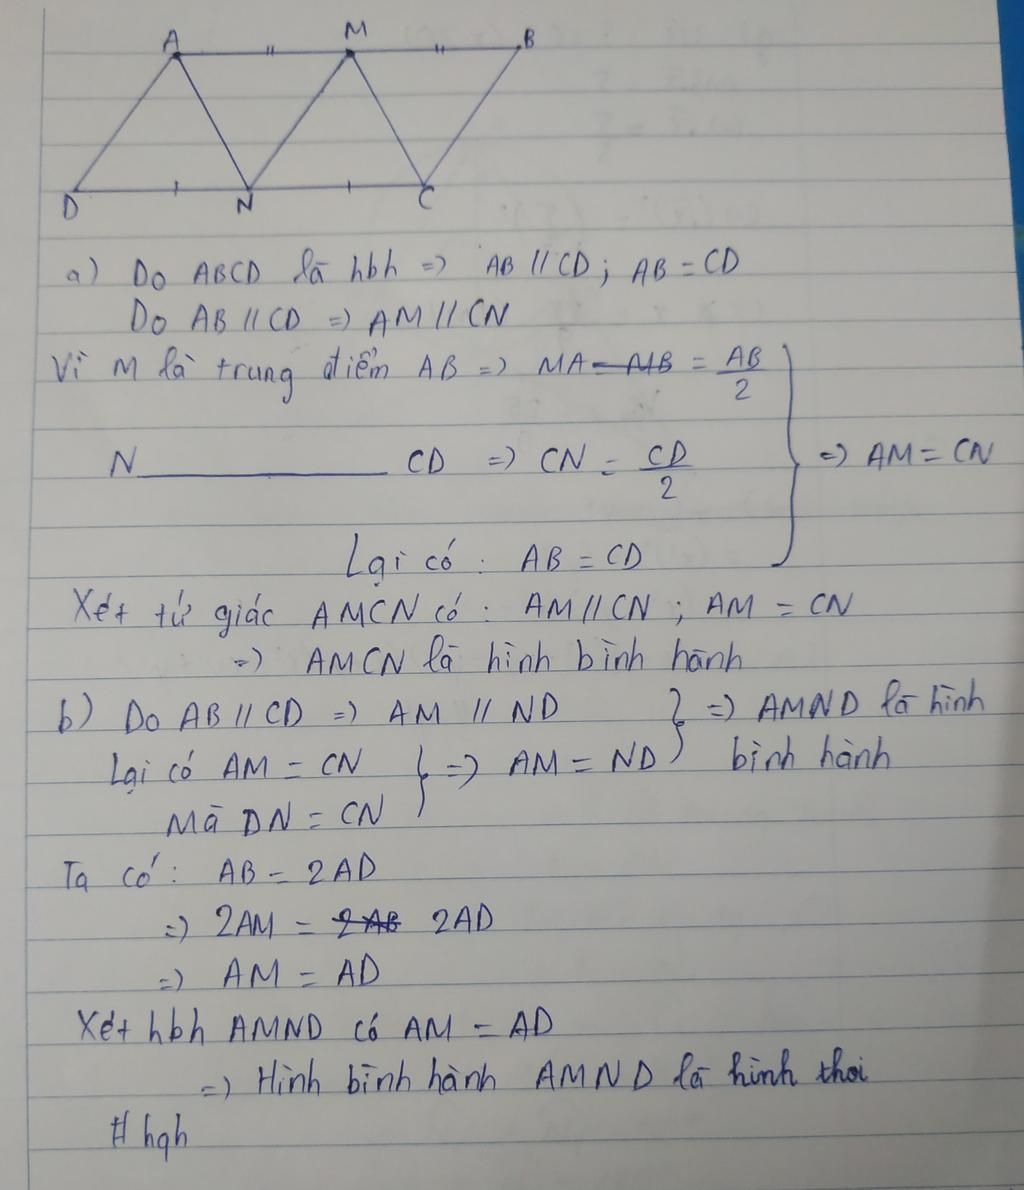 A M B
D N C
a) Do ABCD là hbh => AB // CD ; AB = CD
Do AB // CD => AM // CN
Vì M là trung điểm AB => MA = MB = AB/2
N ________ CD => CN = CD/2
=> AM = CN
Lại có : AB = CD
Xét tứ giác AMCN có : AM // CN ; AM = CN
=> AMCN là hình bình hành
b) Do AB // CD => AM // ND } => AMND là hình
Lại có AM = CN } => AM = ND bình hành
Mà DN = CN
Ta có : AB = 2AD
=> 2AM = 2AB 2AD
=> AM = AD
Xét hbh AMND có AM = AD
=> Hình bình hành AMND là hình thoi
# hqh